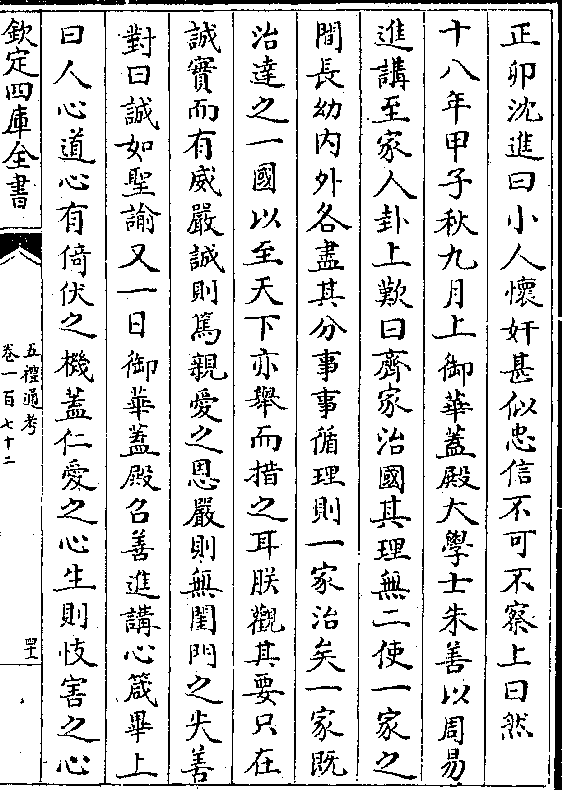 正卯沈進曰小人懷奸甚似忠信不可不察上曰然
十八年甲子秋九月上御華蓋殿大學士朱善以周易
進講至家人卦上歎曰齊家治國其理無二使一家之
間長幼内外各盡其分事事循理則一家治矣一家既
治達之一國以至天下亦舉而措之耳朕觀其要只在
誠實而有威嚴誠則篤親愛之恩嚴則無閨門之失善
對曰誠如聖諭又一日御華蓋殿召善進講心箴畢上
曰人心道心有倚伏之機蓋仁愛之心生則忮害之心
欽定四庫全書
五禮通考
卷一百七十二